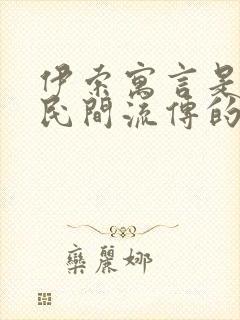 伊索寓言是
民間流傳的
欒麗娜